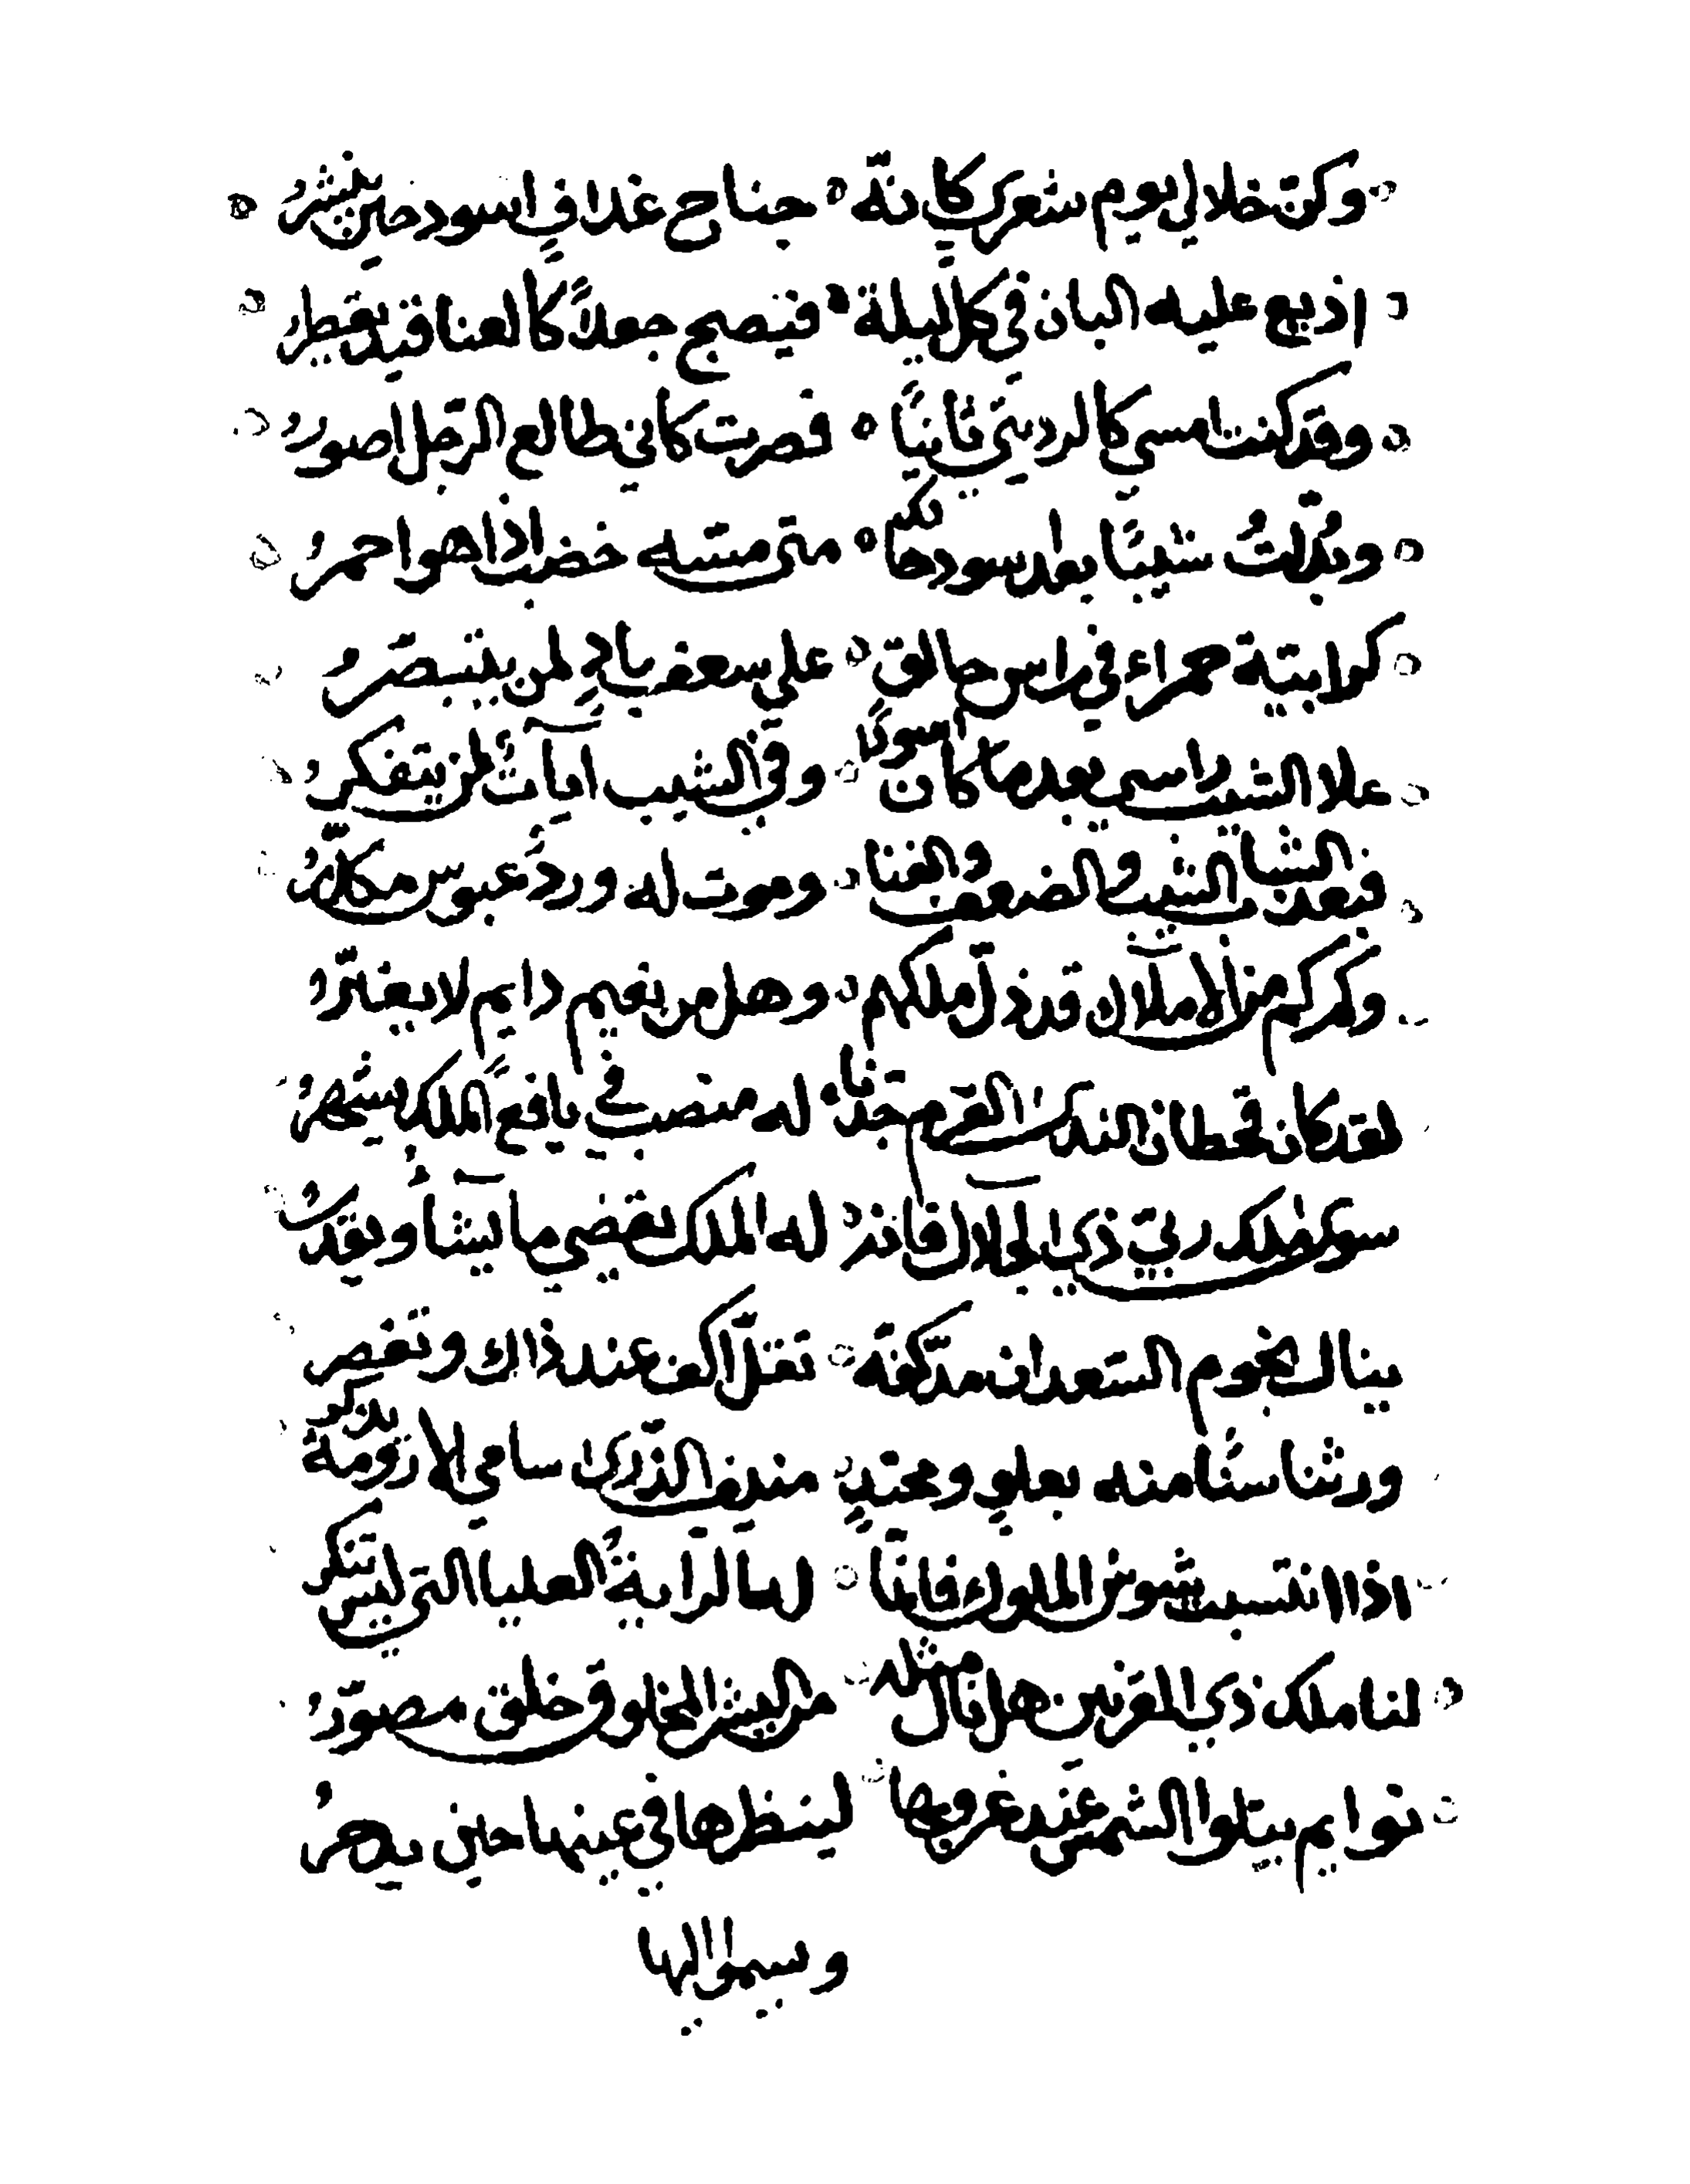 وكن خلالي يوم شعري كانة جناح غداف اسود حين ينشر
اذيع عليه البان في كل ليلة فيصبح جعدا كالعناقيد يقطر
وقد كنت امسي كالرديني ثانيا فصرت كاني طالع الرجل اصور
وبدلت شيبا بعد سود متى مشه خضب اذا هو احمر
كرابية حمراء في راس حالق على سعف بادي لمن يتبصر
علا الشيب راسي بعد ما كان اسودا وفي الشيب ايات لمن يتفكر
فبعد الشباب الشيب والضعف والفنا وموت له ورد عبوس مكدر
وكم كم من الاملاك قد ذل ملكهم وهل من نعيم دايم لا يغير
لقد كان قحطان الندى القرم جدنا له منصب في يافع الملك يشهر
سوى ملك ربي ذي الجلال فانه له الملك يقضي ما يشا ويقدر
ينال نجوم السعد ان مد كفه تقل اكف عند ذاك وتقصر
ورثنا سنا منه يعلو ومحتد منيف الذرى سامي الارومة يذكر
اذا انتسبت شوس الملوك فانما لنا الراية العليا التي ليس تنكر
لنا ملك ذي القرنين هل نال مثله من البشر المخلوق خلق مصور
نوايم يتلوا الشمس عند غروبها لينظرها في عينها حين يدهر
وسيموا اليها